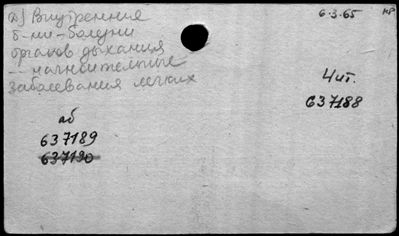 д) Внутренние
б-ни - болезни
органов дыхания
-- нагноительные
заболевания легких
6-3-65
НР
Чит.
637188
аб
637189
637190